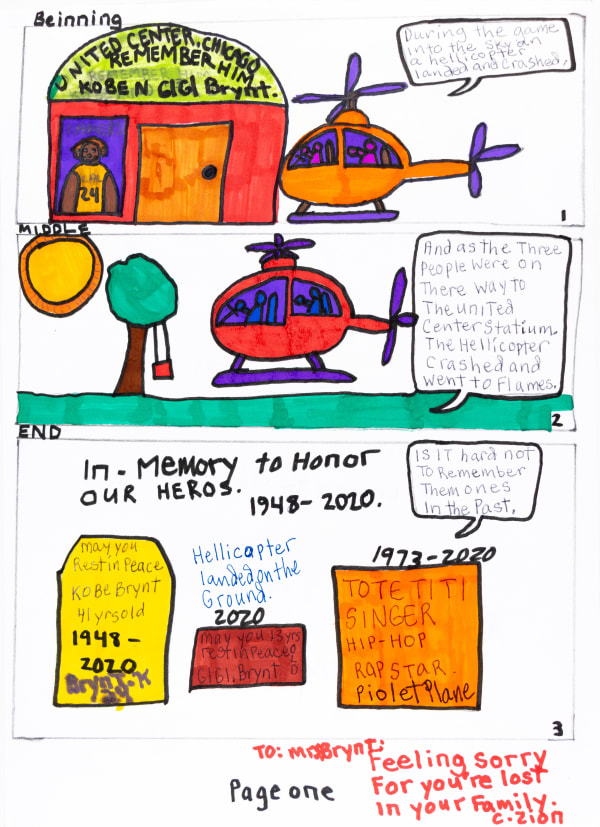 Beinning
UNITED CENTER, CHICAGO
REMEMBER HIM
REMEMBER HIM
KOBE N GIGI Brynt.
24
During the game
into the sky an
a hellicopter
landed and crashed,
1
MIDDLE
And as the Three
People were on
There way to
The united
Center Statium.
The Hellicopter
Crashed and
went to Flames.
2
END
In - Memory to Honor
OUR HEROS.
1948 - 2020.
Is IT hard not
To Remember
Them ones
In the Past,
may you
Rest in Peace
KoBe Brynt
41 yrs old
1948 -
2020
Brynt. K
24
Hellicapter
landed on the
Ground.
2020
may you 13 yrs
rest in Peace
GIGI, Brynt.
1973 - 2020
TOTE TITI
SINGER
HIP-HOP
RAP STAR.
Piolet Plane
3
To: mrs Brynt.
Feeling sorry
For you're lost
In your Family.
C. Zion
Page one